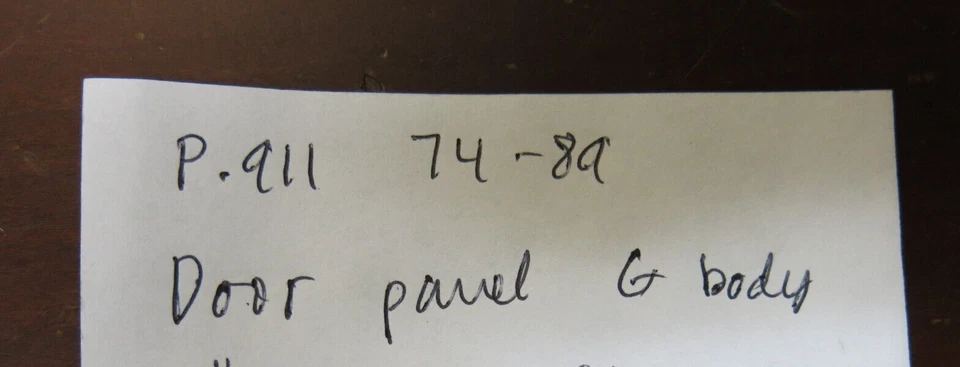 P. 911 74-89
Door panel G body